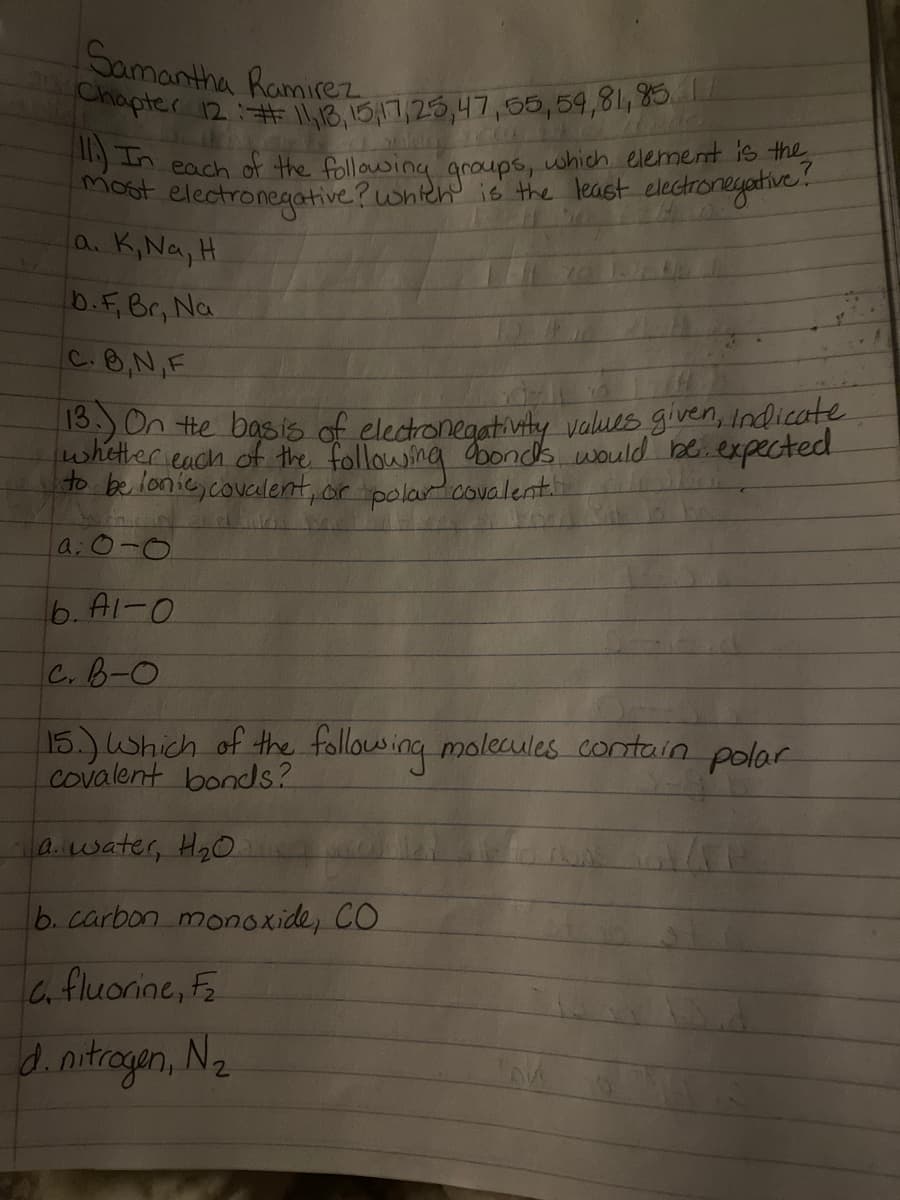 Samantha Ramirez
Chapter 12: # 11,13,15,17,25,47,55,59,81,85
11.) In each of the following groups, which element is the
most electronegative? which is the least electronegative?
a. K, Na, H
b. F, Br, Na
C. B, N, F
13.) On the basis of electronegativity values given, indicate
whether each of the following bonds would be expected
to be ionic, covalent, or polar covalent.
a. O-O
b. Al-O
C. B-O
15.) Which of the following molecules contain polar
covalent bonds?
a. water, H₂O
b. carbon monoxide, CO
C. fluorine, F₂
d. nitrogen, N₂